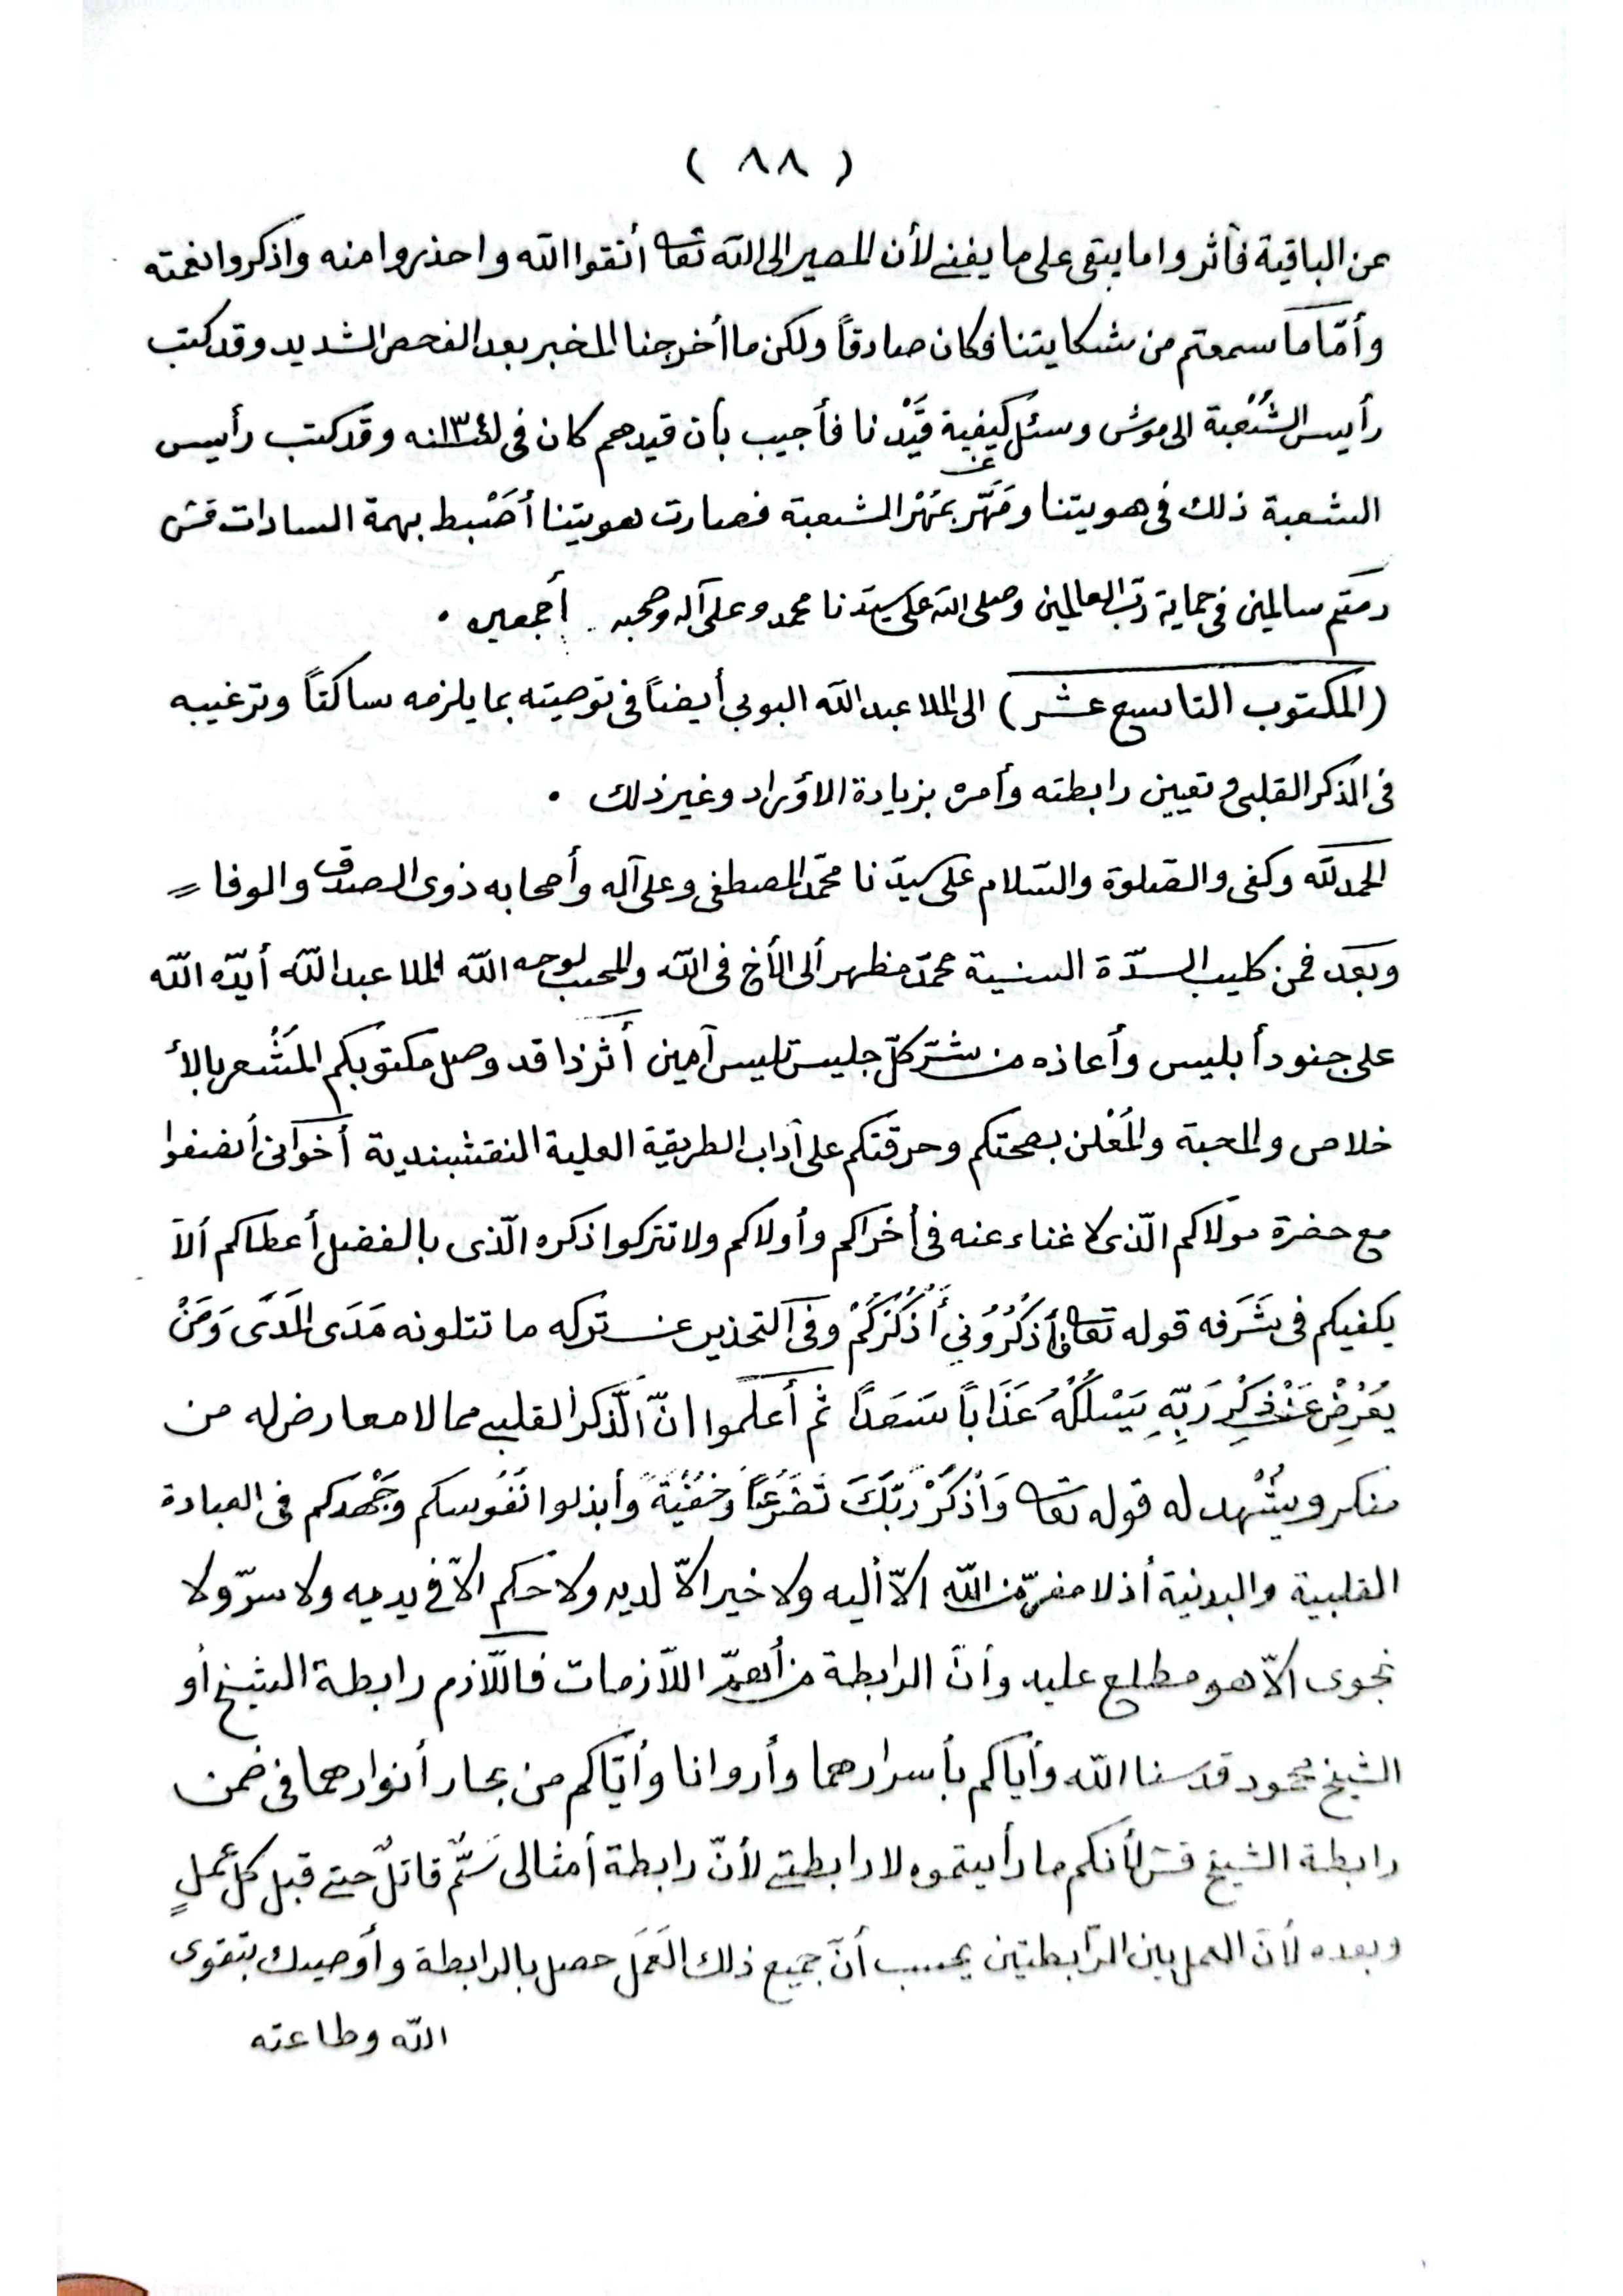 ( ٨٨ )
عن الباقية فآثروا ما يبقى على ما يفنى لأن المصير الى الله تعا أتقوا الله واحذروا منه واذكروا نعمته
وأمّا ما سمعتم من شكايتنا فكان صادقاً ولكن ما أخرجنا المخبر بعد الفحص الشديد وقد كتب
رأيس الشُعْبة الى موش وسئل عن كيفية قَيْدنا فأجيب بأن قيدهم كان في وقد كتب رأيس
الشعبة ذلك فى هويتنا ومَهَّر بمُهْر الشعبة فصارت هويتنا أضْبط بهمة السادات قش
دمتم سالمين فى حماية ربّ العالمين وصلى الله على سيّدنا محمد وعلى آله وصحبه أجمعين .
(المكتوب التاسع عشر) الى الملا عبدالله البوبى أيضاً فى توصيته بما يلزمه ساكتاً وترغيبه
فى الذكر القلبى وتعيين رابطته وأمره بزيادة الاؤراد وغير ذلك .
الحمد لله وكفى والصّلوة والسّلام على سيّدنا محمّد المصطفى وعلى آله وأصحابه ذوى الصدق والوفا =
وبَعَد فمن كليب السدّة السنية محمّد مظهر ألى الأخ فى الله والمحب لوجه الله الملا عبدالله أيدّه الله
على جنود أبليس وأعاذه من شرّ كلّ جليس تلبيس آمين أثرذا قد وصل مكتوبكم المُشْعر بالأ
خلاص والمحبة والمُعْلن بصحتكم وحرقتكم على آداب الطريقة العلية النقشبندية أخوانى أنصفوا
مع حضرة مولاكم الّذى لا غناء عنه فى أخراكم وأولاكم ولا تتركوا ذكره الّذى بالفضل أعطاكم ألاَ
يكفيكم فى شَرَفه قوله تعا فأذكُرُونِي أَذْكُرْكُمْ وفى التحذير عن تركه ما تتلونه مَدَى المَدَى وَمَنْ
يُعْرِضْ عَنْ ذِكْرِ رَبِّهِ يَسْلُكْهُ عَذَاباً صَعَداً ثم أعلموا انّ الذّكر القلبى مما لا معارض له من
منكر ويشْهد له قوله تعا وَاْذكُرْ رَبَّكَ تَضَرُّعاً وَخُفْيَةً وأبذلوا نُفُوسكم وجُهْدكم فى العبادة
القلبية والبدنية أذ لا مفرّ من الله الاّ أليه ولا خير الاّ لديه ولا حكم الاّ فى يديه ولا سرّ ولا
نجوى الاّ هو مطلع عليه وأنّ الرابطة من أهمّ اللاّزمات فاللّازم رابطة الشيخ أو
الشيخ محمود قدسنا الله وأياكم بأسرارهما وأروانا وأيّاكم من بحار أنوارهما فى ضمن
رابطة الشيخ قش لأنكم ما رأيتموه لا رابطتى لأنّ رابطة أمثالى سَمٌّ قاتلٌ حتى قبل كلّ عملٍ
وبعده لأنّ العمل بين الرّابطتين يحسب أنّ جميع ذلك العَمَل حصل بالرابطة وأوصيك بتقوى
الله وطاعته